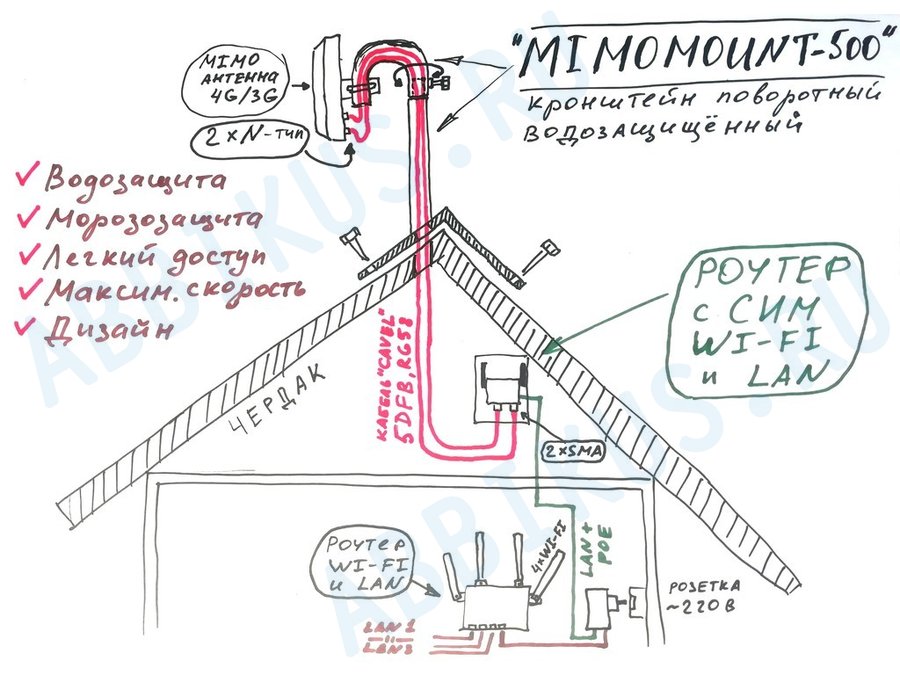 "MIMOMOUNT-500"
кронштейн поворотный
водозащищённый
MIMO
АНТЕННА
4G/3G
2×N-тип
✓ Водозащита
✓ Морозозащита
✓ Легкий доступ
✓ Максим. скорость
✓ Дизайн
РОУТЕР
с СИМ
WI-FI
и LAN
ЧЕРДАК
КАБЕЛЬ "CAVEL"
5DFB, RG58
2×SMA
РОУТЕР
WI-FI
и LAN
4×WI-FI
LAN+
POE
РОЗЕТКА
~220В
LAN 1
"
LAN 3
ABBIKUS.RU
ABBIKUS.RU
ABBIKUS.RU